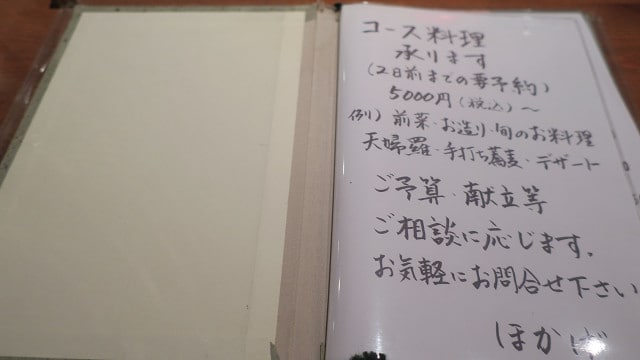 コース料理
承ります
(2日前までの要予約)
5000円(税込)～
例)前菜・お造り・旬のお料理
天婦羅・手打ち蕎麦・デザート
ご予算・献立等
ご相談に応じます.
お気軽にお問合せ下さい
ほかげ